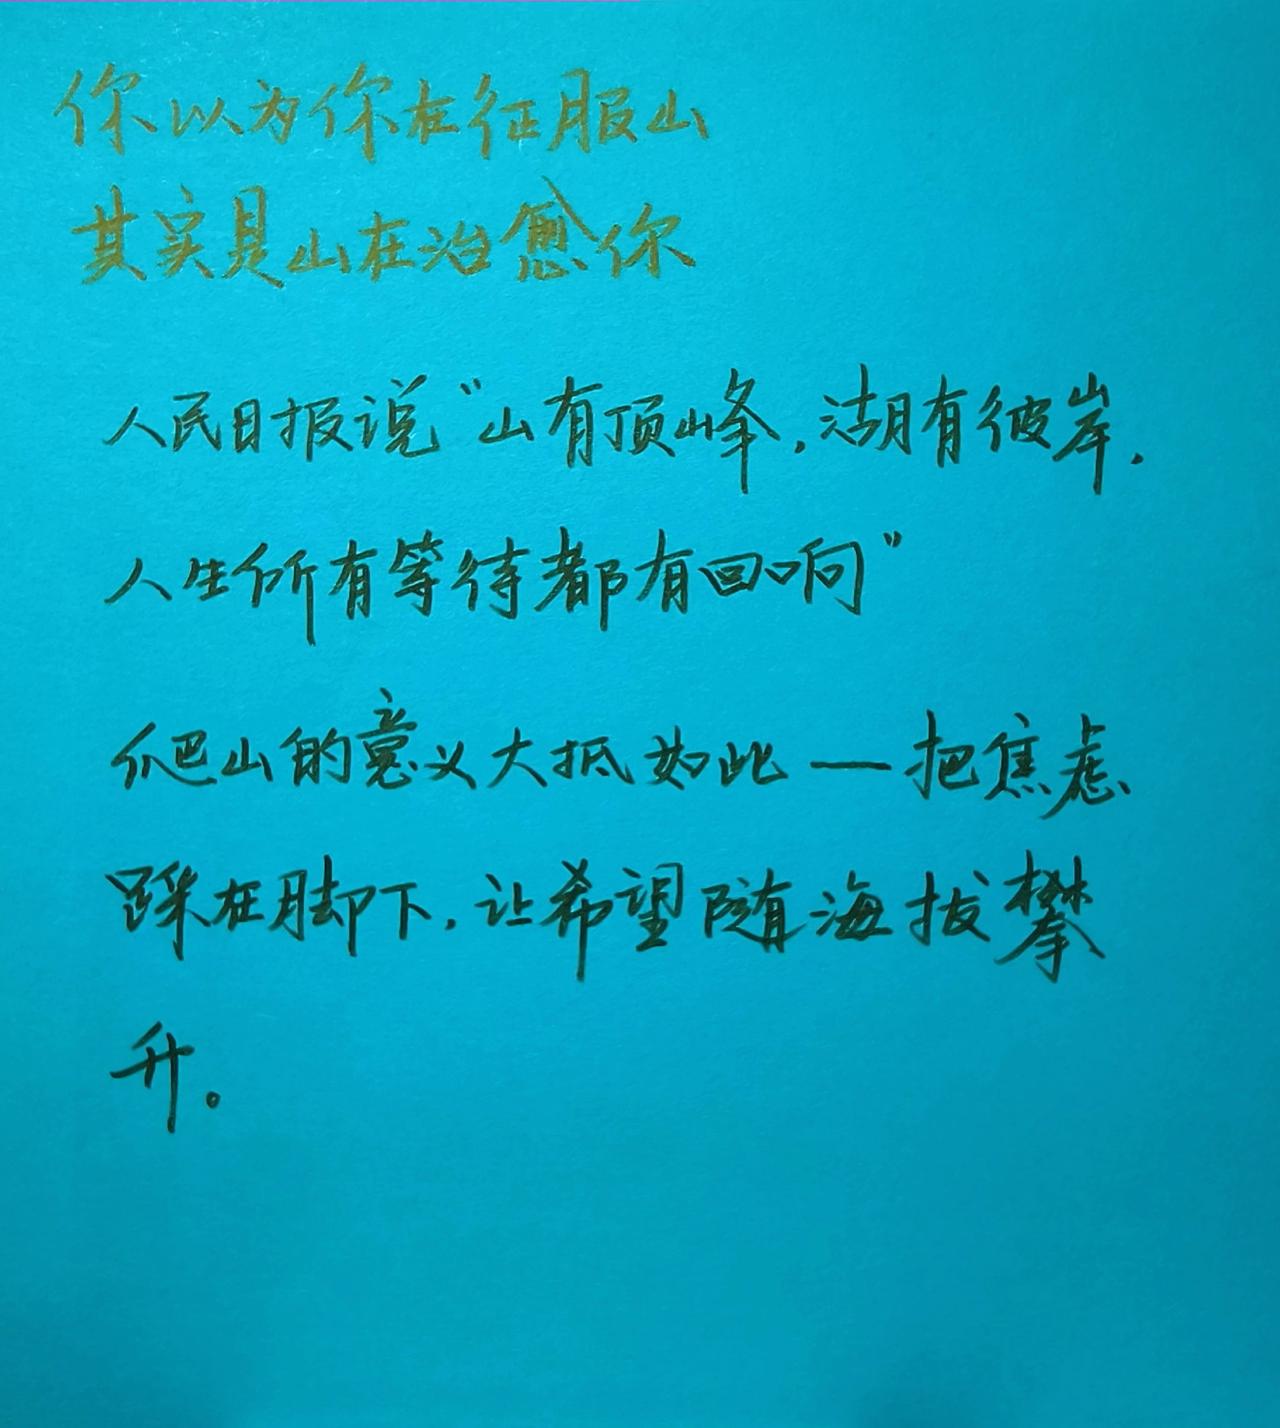 你以为你在征服山
其实是山在治愈你
人民日报说“山有顶峰，湖有彼岸，
人生所有等待都有回响”
爬山的意义大抵如此—把焦虑
踩在脚下，让希望随海拔攀
升。